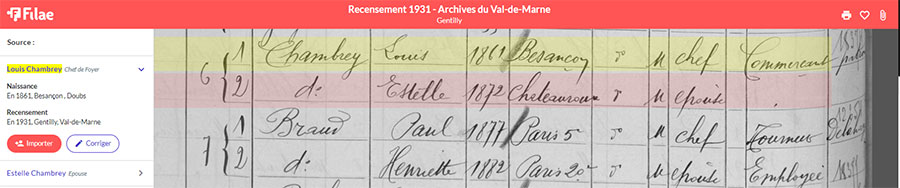 Filae
Recensement 1931 - Archives du Val-de-Marne
Gentilly
Source :
Louis Chambrey Chef de Foyer
Naissance
En 1861, Besançon , Doubs
Recensement
En 1931, Gentilly, Val-de-Marne
Importer
Corriger
Estelle Chambrey Epouse
6 1 Chambrey Louis 1861 Besançon M chef Commercant
2 do Estelle 1872 Chateauroux M épouse
7 1 Braud Paul 1877 Paris 5e M chef Tourneur
2 do Henriette 1882 Paris 20e M épouse Employée